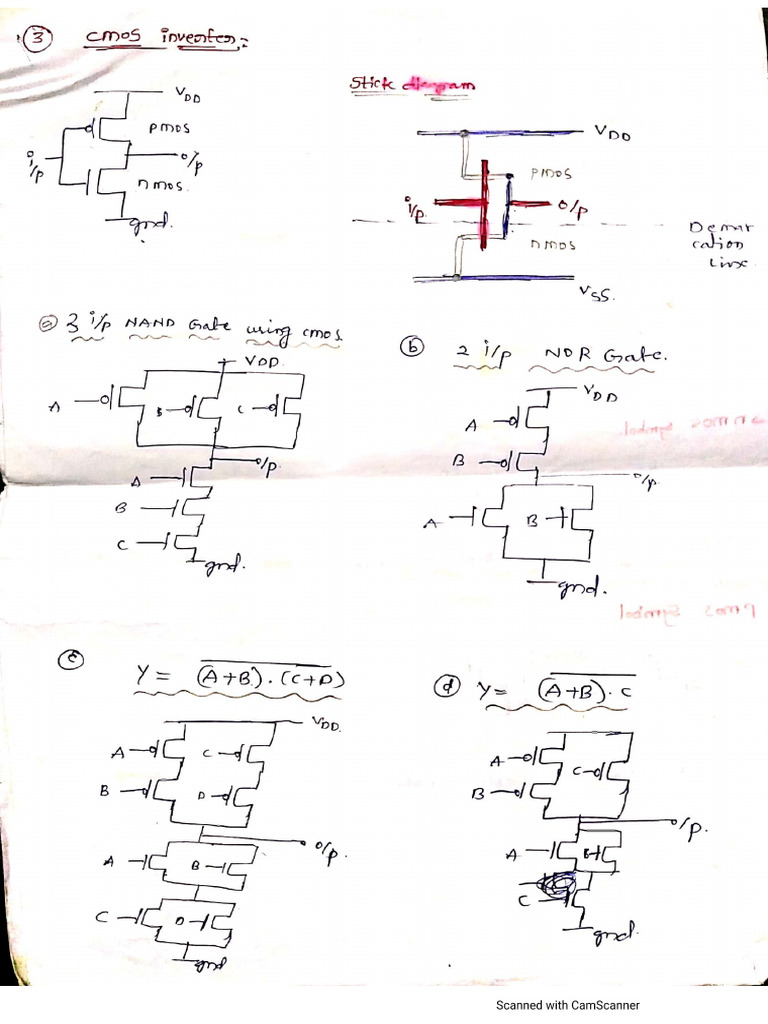 ③ CMOS inverter:-
VDD
PMOS
i/p
o/p
nmos.
gnd.
Stick diagram
VDD
PMOS
i/p.
o/p
Demar
cation
Line.
nmos
VSS.
ⓐ 3 i/p NAND Gate using cmos
VDD.
A
B
C
o/p.
A
B
C
gnd.
ⓑ 2 i/p NOR Gate.
VDD
A
B
o/p.
A
B
gnd.
ⓒ Y = (A+B).(C+D)
VDD.
A
C
B
D
o/p.
A
B
C
D
gnd
ⓓ Y= (A+B).C
A
C
B
o/p.
A
B
C
gnd.
Scanned with CamScanner